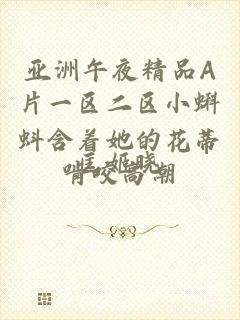 亚洲午夜精品A
片一区二区小蝌
蚪含着她的花蒂
啃咬高潮
姬晓